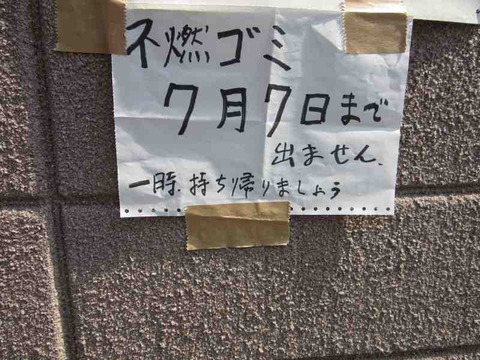 不燃ゴミ
7月7日まで
出ません.
一時.持ち帰りましょう